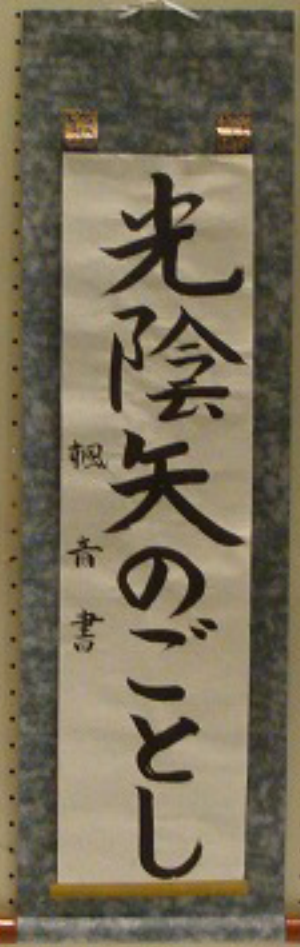 光陰矢のごとし
楓音書